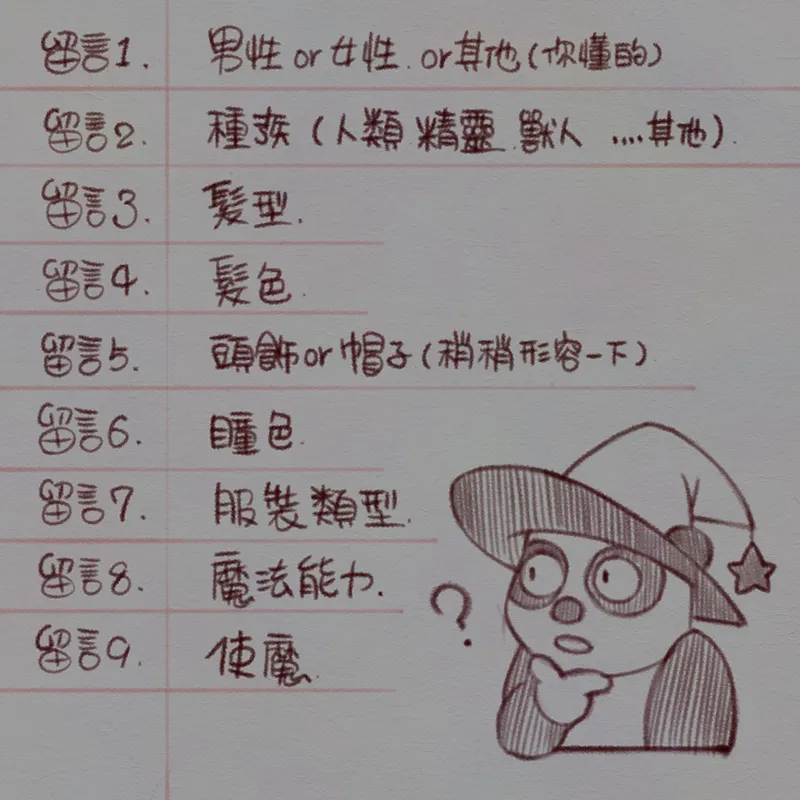 留言1. 男性 or 女性. or其他(你懂的)
留言2. 種族 (人類 精靈 獸人 ....其他).
留言3. 髮型.
留言4. 髮色.
留言5. 頭飾or 帽子(稍稍形容一下)
留言6. 瞳色.
留言7. 服裝類型.
留言8. 魔法能力.
留言9. 使魔.
?